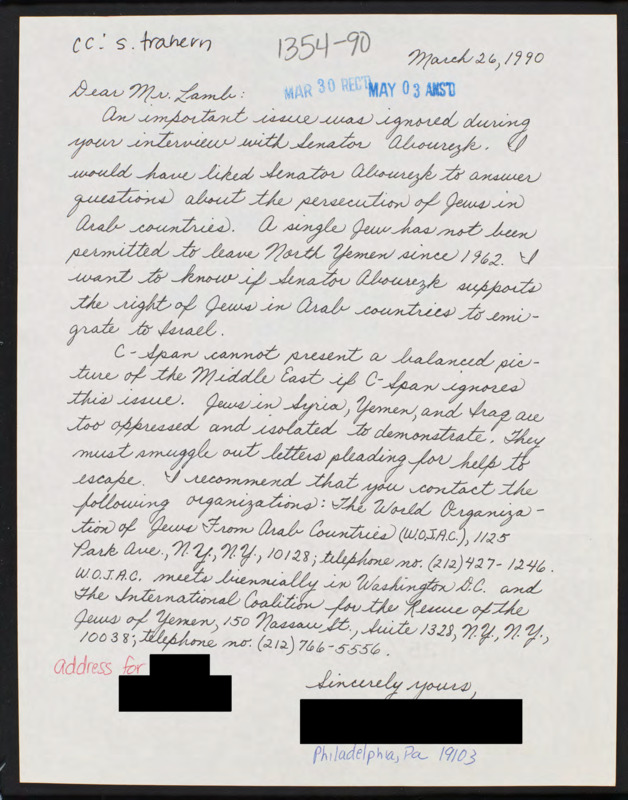 cc: s. trahern
1354-90
March 26, 1990
MAR 30 REC'D
MAY 03 ANS'D
Dear Mr. Lamb:
An important issue was ignored during
your interview with Senator Abourezk. I
would have liked Senator Abourezk to answer
questions about the persecution of Jews in
Arab countries. A single Jew has not been
permitted to leave North Yemen since 1962. I
want to know if Senator Abourezk supports
the right of Jews in Arab countries to emi-
grate to Israel.
C-Span cannot present a balanced pic-
ture of the Middle East if C-Span ignores
this issue. Jews in Syria, Yemen, and Iraq are
too oppressed and isolated to demonstrate. They
must smuggle out letters pleading for help to
escape. I recommend that you contact the
following organizations: The World Organiza-
tion of Jews From Arab Countries (W.O.J.A.C.), 1125
Park Ave., N.Y., N.Y., 10128; telephone no. (212) 427-1246.
W.O.J.A.C. meets biennially in Washington D.C. and
The International Coalition for the Rescue of the
Jews of Yemen, 150 Nassau St., Suite 1328, N.Y., N.Y.,
10038; telephone no. (212) 766-5556.
address for
Sincerely yours,
Philadelphia, Pa 19103